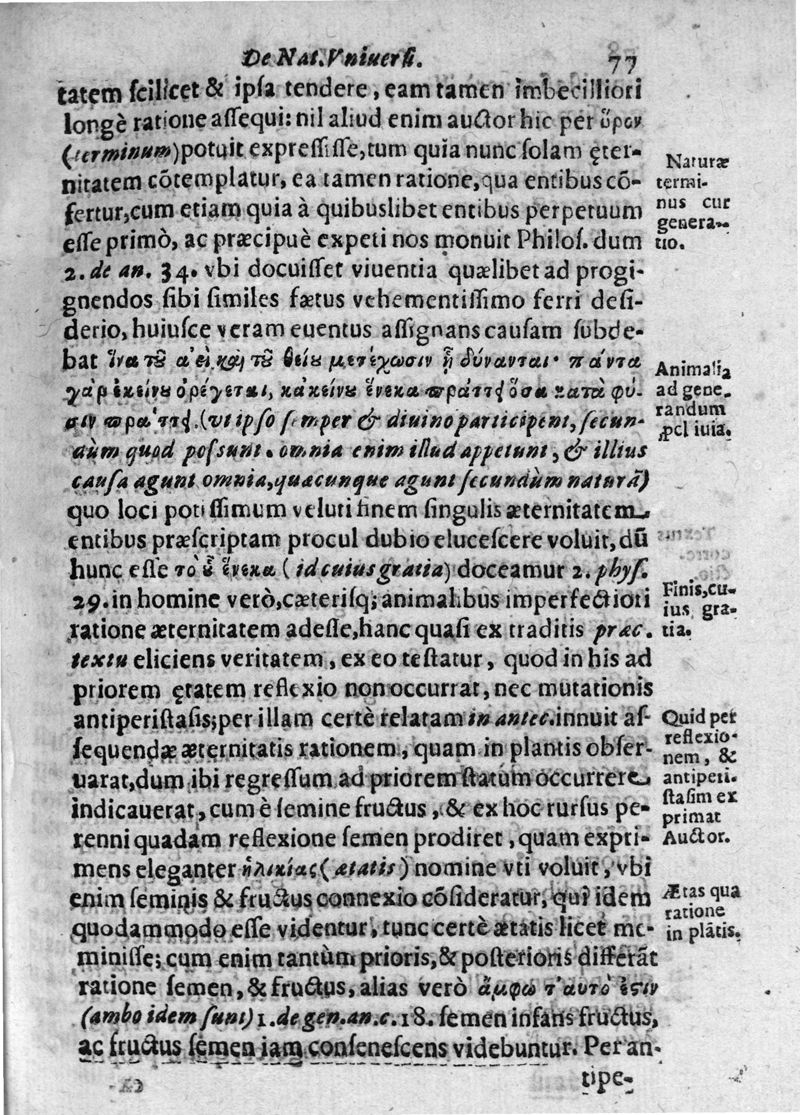 De Nat. Vniuersi. 77
tatem scilicet & ipsa tendere, eam tamen imbecilliori
longè ratione assequi: nil aliud enim auctor hic per ὅρον
(terminum) potuit expressisse, tum quia nunc solam ęter-
nitatem cõtemplatur, ea tamen ratione, qua entibus cõ-
fertur, cum etiam quia à quibuslibet entibus perpetuum
esse primò, ac præcipuè expeti nos monuit Philos. dum
2. de an. 34. vbi docuisset viuentia quælibet ad progi-
gnendos sibi similes fætus vehementissimo ferri desi-
derio, huiusce veram euentus assignans causam subde-
bat ἵνα τοῦ ἀεὶ καὶ τοῦ θείου μετέχωσιν ᾗ δύνανται· πάντα
γὰρ ἐκείνου ὀρέγεται, κἀκείνου ἕνεκα πράττει ὅσα κατὰ φύ-
σιν πράττει. (vt ipso semper & diuino participent, secun-
dùm quod possunt. omnia enim illud appetunt, & illius
causa agunt omnia, quacunque agunt secundùm naturã)
quo loci potissimum veluti finem singulis æternitatem
entibus præscriptam procul dubio elucescere voluit, dũ
hunc esse τὸ οὗ ἕνεκα (id cuius gratia) doceamur 2. phys.
29. in homine verò, cæterisq; animalibus imperfectiori
ratione æternitatem adesse, hanc quasi ex traditis præc.
textu eliciens veritatem, ex eo testatur, quod in his ad
priorem ętatem reflexio non occurrat, nec mutationis
antiperistasis; per illam certè relatam in antec. innuit as-
sequendæ æternitatis rationem, quam in plantis obser-
uarat, dum ibi regressum ad priorem statum occurrere
indicauerat, cum è semine fructus, & ex hoc rursus pe-
renni quadam reflexione semen prodiret, quam expri-
mens eleganter ἡλικίας (ætatis) nomine vti voluit, vbi
enim seminis & fructus connexio cõsideratur, qui idem
quodammodo esse videntur, tunc certè ætatis licet me-
minisse; cum enim tantùm prioris, & posterioris differãt
ratione semen, & fructus, alias verò ἄμφω τ'αυτό ἐστιν
(ambo idem sunt) 1. de gen. an. c. 18. semen infans fructus,
ac fructus semen iam consenescens videbuntur. Per an-
tipe-
Naturæ
termi-
nus cur
genera-
tio.
Animalia
ad gene-
randum
ꝓcliuia.
Finis, cu-
ius gra-
tia.
Quid per
reflexio-
nem, &
antiperi-
stasim ex
primat
Auctor.
Ætas qua
ratione
in plãtis.